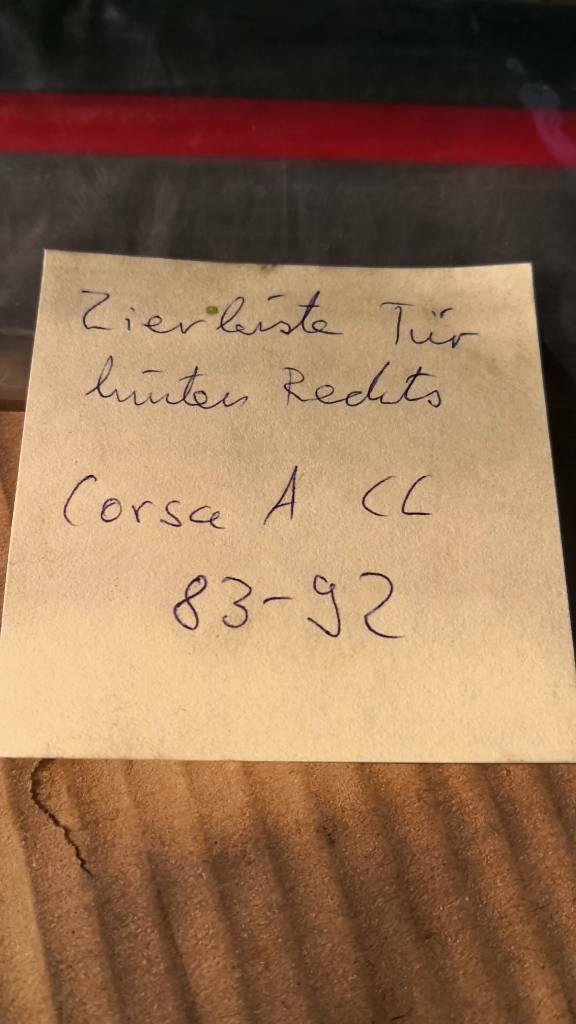 Zierleiste Tür
hinten Rechts
Corsa A CC
83-92